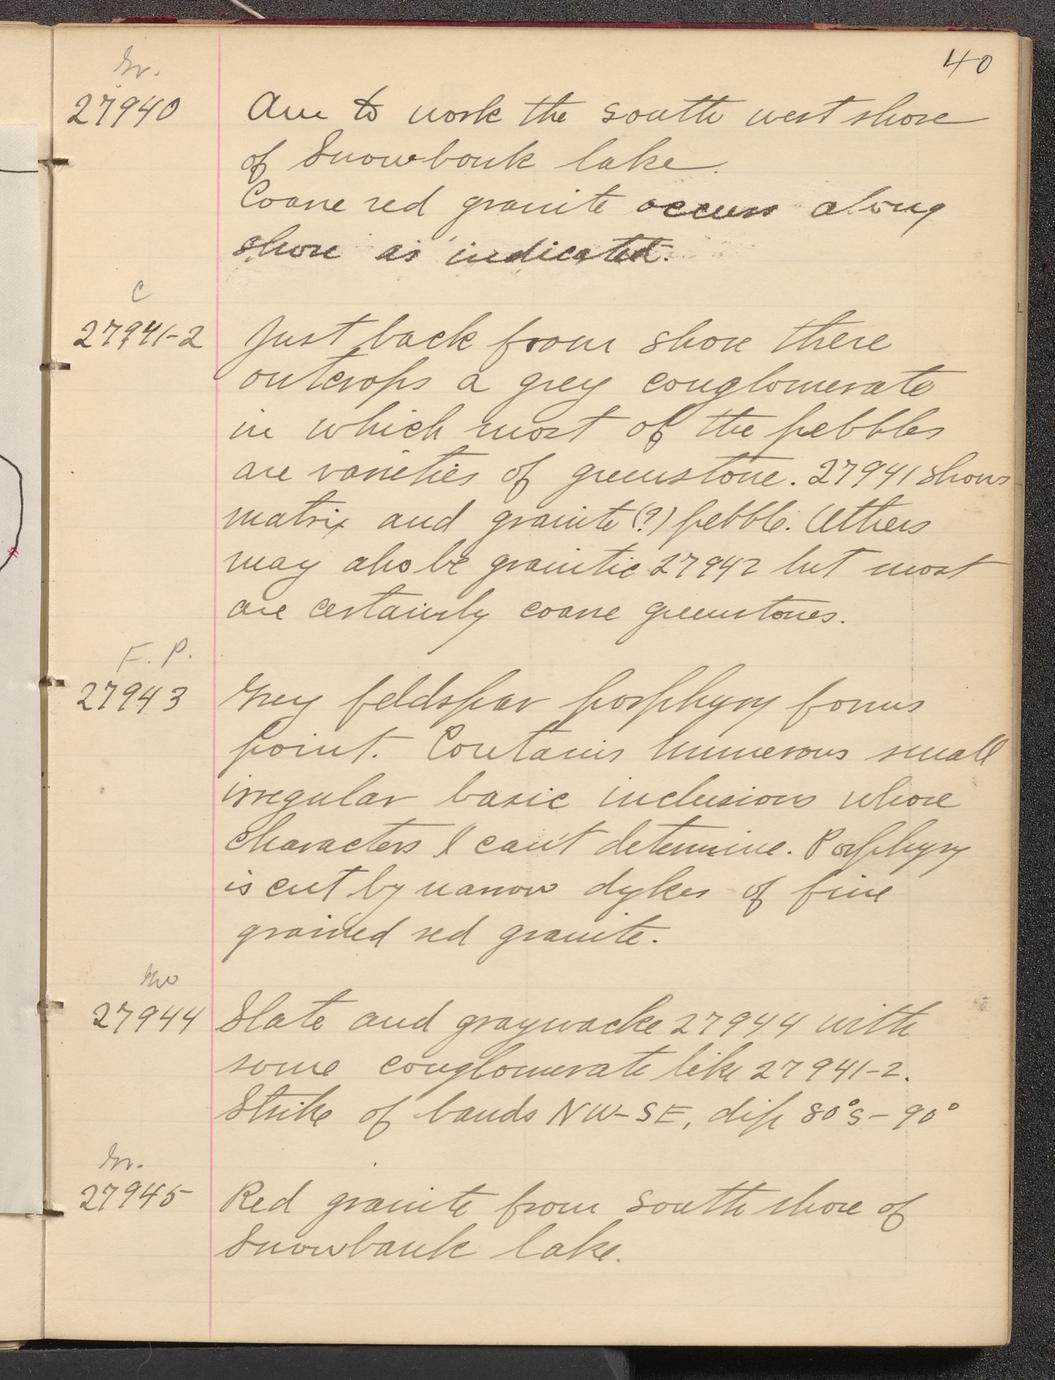 40
Gr.
27940 Am to work the south west shore
of Snowbank lake.
Coarse red granite occurs along
shore as indicated.
C
27941-2 Just back from shore there
outcrops a grey conglomerate
in which most of the pebbles
are varieties of greenstone. 27941 shows
matrix and granite (?) pebble. Others
may also be granitic 27942 but most
are certainly coarse greenstones.
F. P.
27943 Grey feldspar porphyry forms
point. Contains numerous small
irregular basic inclusions whose
characters I can't determine. Porphyry
is cut by narrow dykes of fine
grained red granite.
27944 Slate and graywacke 27944 with
some conglomerate like 27941-2.
Strike of bands NW-SE, dip 80°S-90°
Gr.
27945 Red granite from south shore of
Snowbank lake.